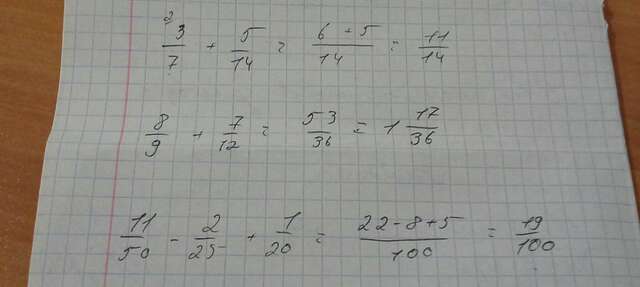 ²3/7 + 5/14 = (6 + 5)/14 = 11/14
8/9 + 7/12 = 53/36 = 1 17/36
11/50 - 2/25 + 1/20 = (22 - 8 + 5)/100 = 19/100